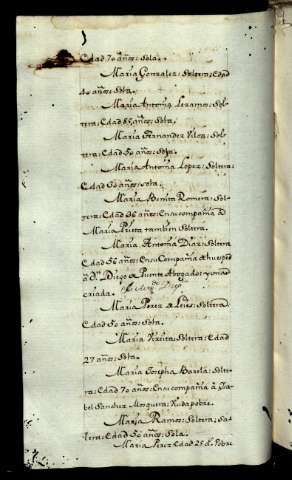 Edad 70 años: Sola.
Maria Gonzalez: Soltera: Edad
40 años: Sola.
Maria Antonia Leramos: Sol-
tera: Edad 65 años: Sola.
Maria Fernandez: Sol-
tera: Edad 50 años: Sola.
Maria Antonia Lopez: Soltera:
Edad 60 años: sola.
Maria Benita Romera: Sol-
tera: Edad 36 años: En su compañia a
Maria Prieto tambien Soltera.
Maria Antonia Diaz: Soltera
Edad 56 años: En su Compañia
a Dn. Diego Puente Abogado: y una
criada.
Maria Perez de Leis: Soltera
Edad 50 años: Sola
Maria Soltera: Edad
27 años: Sola.
Maria Josepha Barela: Solte-
ra: Edad 70 años: En su compañia a Isa-
bel Sanchez Mosquera: Viuda pobre.
Maria Ramos: Soltera: Sa-
Edad 50 años: Sola.
Maria Perez Edad 25 a. Pobre